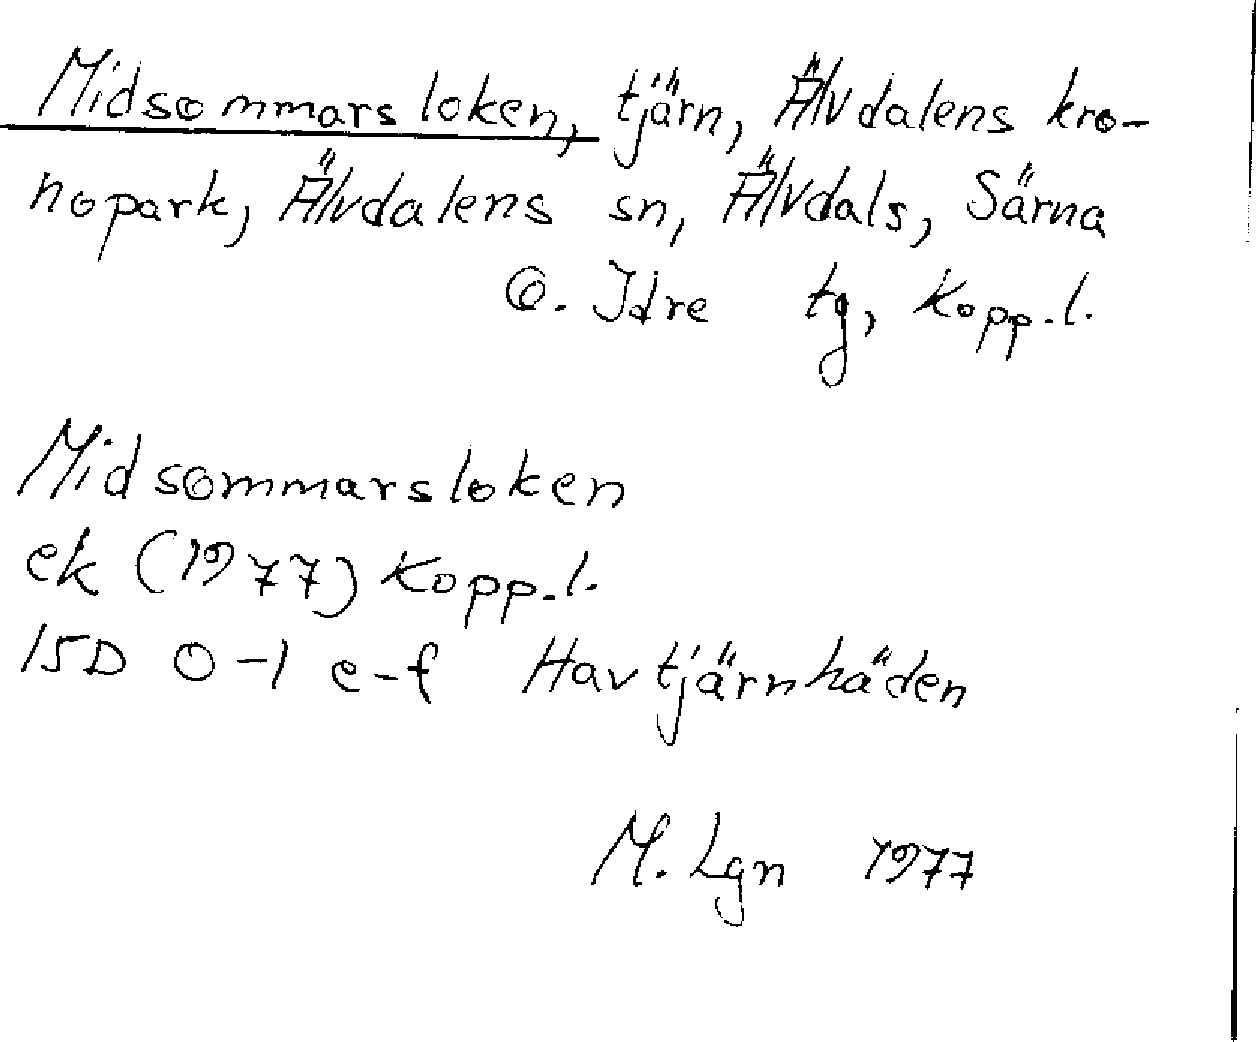 Midsommarsloken, tjärn, Älvdalens kro-
nopark, Älvdalens sn, Älvdals, Särna
o. Idre tg, Kopp.l.
Midsommarsloken
ek (1977) Kopp.l.
15D 0-1 e-f Havtjärnhäden
M. Lgn 1977